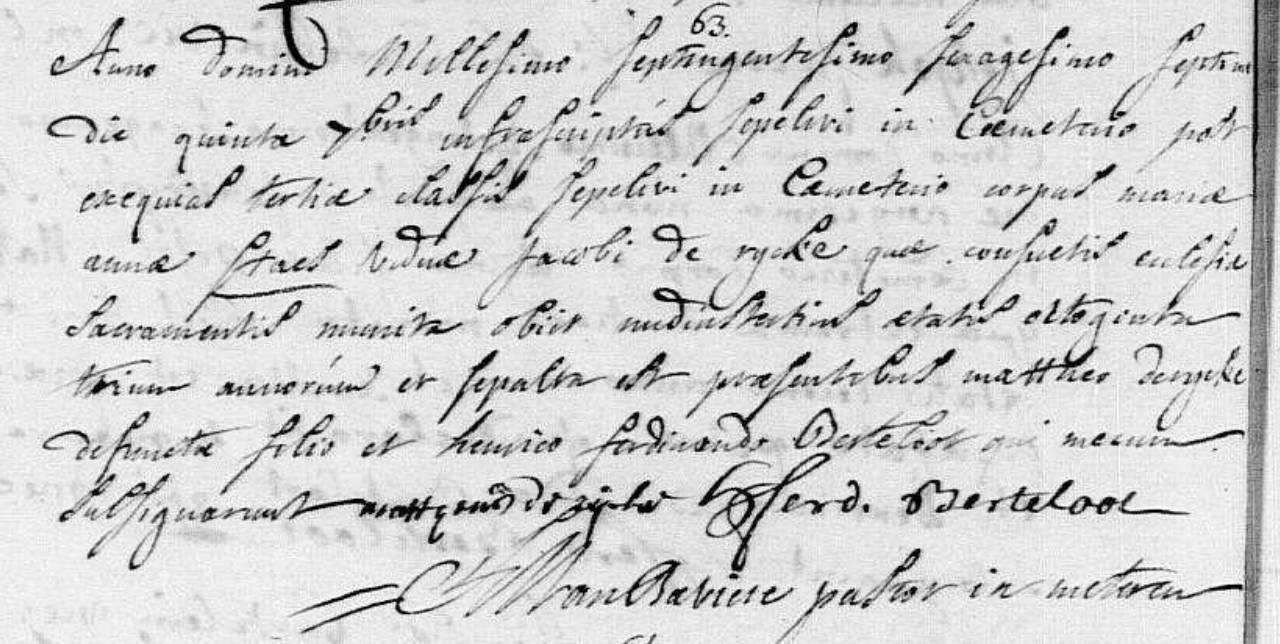 63.
Anno Domini Millesimo Septingentesimo sexagesimo septimo
die quinta 7bris infrascriptus sepelivi in Cæmeterio post
exequias tertiæ classis sepelivi in Cæmeterio corpus mariæ
annæ Staes viduæ Jacobi de rycke quæ consuetis ecclesiæ
Sacramentis munita obiit nudiustertius ætatis octogenta
trium annorum et sepulta est præsentibus mattheo derycke
defunctæ filio et henrico ferdinando Berteloot qui mecum
subsignarunt de rycke h ferd. Berteloot
Van Baviere pastor in meteren